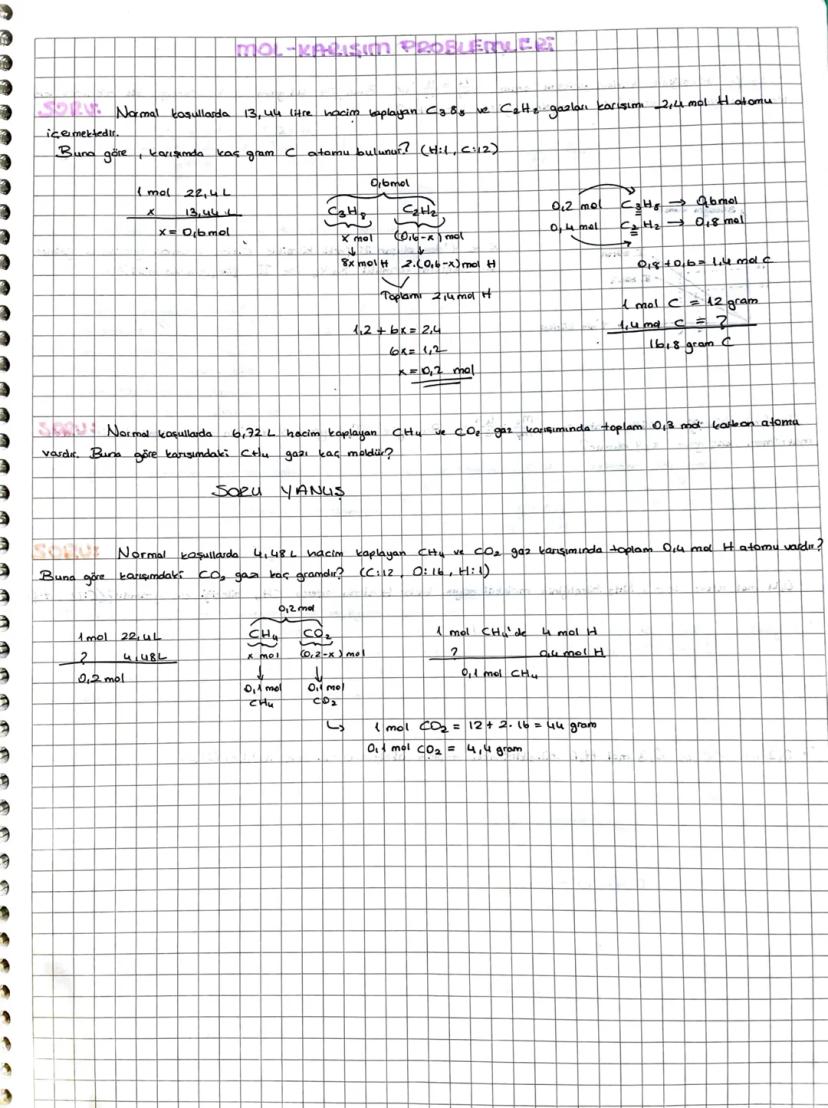 MOL-KARIŞIM PROBLEMLERİ
SORU: Normal koşullarda 13,44 litre hacim kaplayan C3H8 ve C2H2 gazları karışımı 2,4 mol H atomu
içermektedir.
Buna göre, karışımda kaç gram C atomu bulunur? (H:1, C:12)
1 mol 22,4 L
x 13,44 L
x = 0,6 mol
0,6 mol
C3H8 C2H2
x mol (0,6-x) mol
8x mol H 2.(0,6-x) mol H
Toplamı 2,4 mol H
1,2 + 6x = 2,4
6x = 1,2
x = 0,2 mol
0,2 mol C3H8 → 0,6 mol
0,4 mol C2H2 → 0,8 mol
0,8 + 0,6 = 1,4 mol C
1 mol C = 12 gram
1,4 mol C = ?
16,8 gram C
SORU: Normal koşullarda 6,72 L hacim kaplayan CH4 ve CO2 gaz karışımında toplam 0,3 mol karbon atomu
vardır. Buna göre karışımdaki CH4 gazı kaç moldür?
SORU YANLIŞ
SORU: Normal koşullarda 4,48 L hacim kaplayan CH4 ve CO2 gaz karışımında toplam 0,4 mol H atomu vardır?
Buna göre karışımdaki CO2 gazı kaç gramdır? (C:12, O:16, H:1)
1 mol 22,4L
? 4,48L
0,2 mol
0,2 mol
CH4 CO2
x mol (0,2-x) mol
0,1 mol 0,1 mol
CH4 CO2
1 mol CH4'de 4 mol H
? 0,4 mol H
0,1 mol CH4
↳ 1 mol CO2 = 12 + 2.16 = 44 gram
0,1 mol CO2 = 4,4 gram